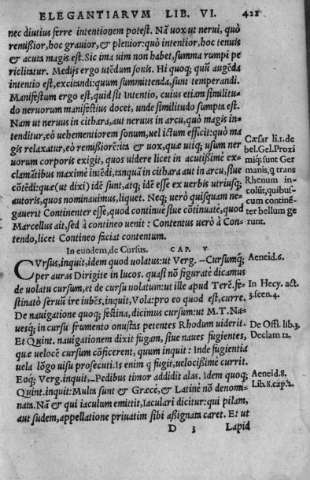 ELEGANTIARVM LIB. VI. 421
nec diutius ferre intentionem potest. Nā uox ut nerui, quò
remißior, hoc grauior, & plenior: quò intentior, hoc tenuis
& acuta magis est. Sic ima uim non habet, summa rumpi pe
riclitatur. Medijs ergo utēdum sonis. Hi quoq; quū augēda
intentio est, excitandi: quum summittenda, sunt temperandi.
Manifestum ergo est, quid sit intentio, cuius etiam similitu-
do neruorum manifestius docet, unde similitudo sumpta est.
Nam ut neruus in cithara, aut neruus in arcu, quò magis in-
tenditur, eò uehementiorem sonum, uel ictum efficit: quò ma
gis relaxatur, eò remißiorē: ita & uox, quæ utiq; usum ner
uorum corporis exigit, quos uidere licet in acutißimè ex-
clamātibus maximè intēdi, tanquā in cithara aut in arcu, siue
cōtēdi: quæ (ut dixi) idē sunt, atq; idē esse ex uerbis utriusq;
autoris, quos nominauimus, liquet. Neq; uerò quisquam ne-
gauerit Continenter esse, quod continuè siue cōtinuatè, quod
Marcellus ait, sed à contineo uenit: Contentus uerò à Con-
tendo, licet Contineo faciat contentum.
Cæsar li.1. de
bel. Gel. Proxi
miq́; sunt Ger
manis, q̃ trans
Rhenum in-
colūt, quibus-
cum continē-
ter bellum ge
runt.
In eundem, de Cursus. CAP. V
CVrsus, inquit, idem quod uolatus: ut Verg. –Cursumq́;
per auras Dirigite in lucos. quasi nō figuratè dicamus
de uolatu cursum, et de cursu uolatum: ut ille apud Terē. fe-
stinatò seruū ire iubēs, inquit, Vola: pro eo quod est, curre.
De nauigatione quoq; festina, dicimus cursum: ut M.T. Na-
uesq́; in cursu frumento onustas petentes Rhodum uiderit.
Et Quint. nauigationem dixit fugam, siue naues fugientes,
quum uelocē cursum cōficerent, quum inquit: Inde fugientia
uela lōgo uisu prosecuti. Is enim q fugit, uelocißimè currit.
Eoq́; Verg. inquit, –Pedibus timor addidit alas. Idem quoq;
Quint. inquit: Multa sunt & Græcè, & Latinè nō denomi-
nata. Nā & qui iaculum emittit, Iaculari dicitur: qui pilam,
aut sudem, appellatione priuatim sibi aßignata caret. Et ut
Aeneid.6.
In Hecy. act.
3. scen.4.
De Offi. lib.3.
Declam.12.
Aeneid.8.
Lib.8.cap.2.
D 3 Lapid